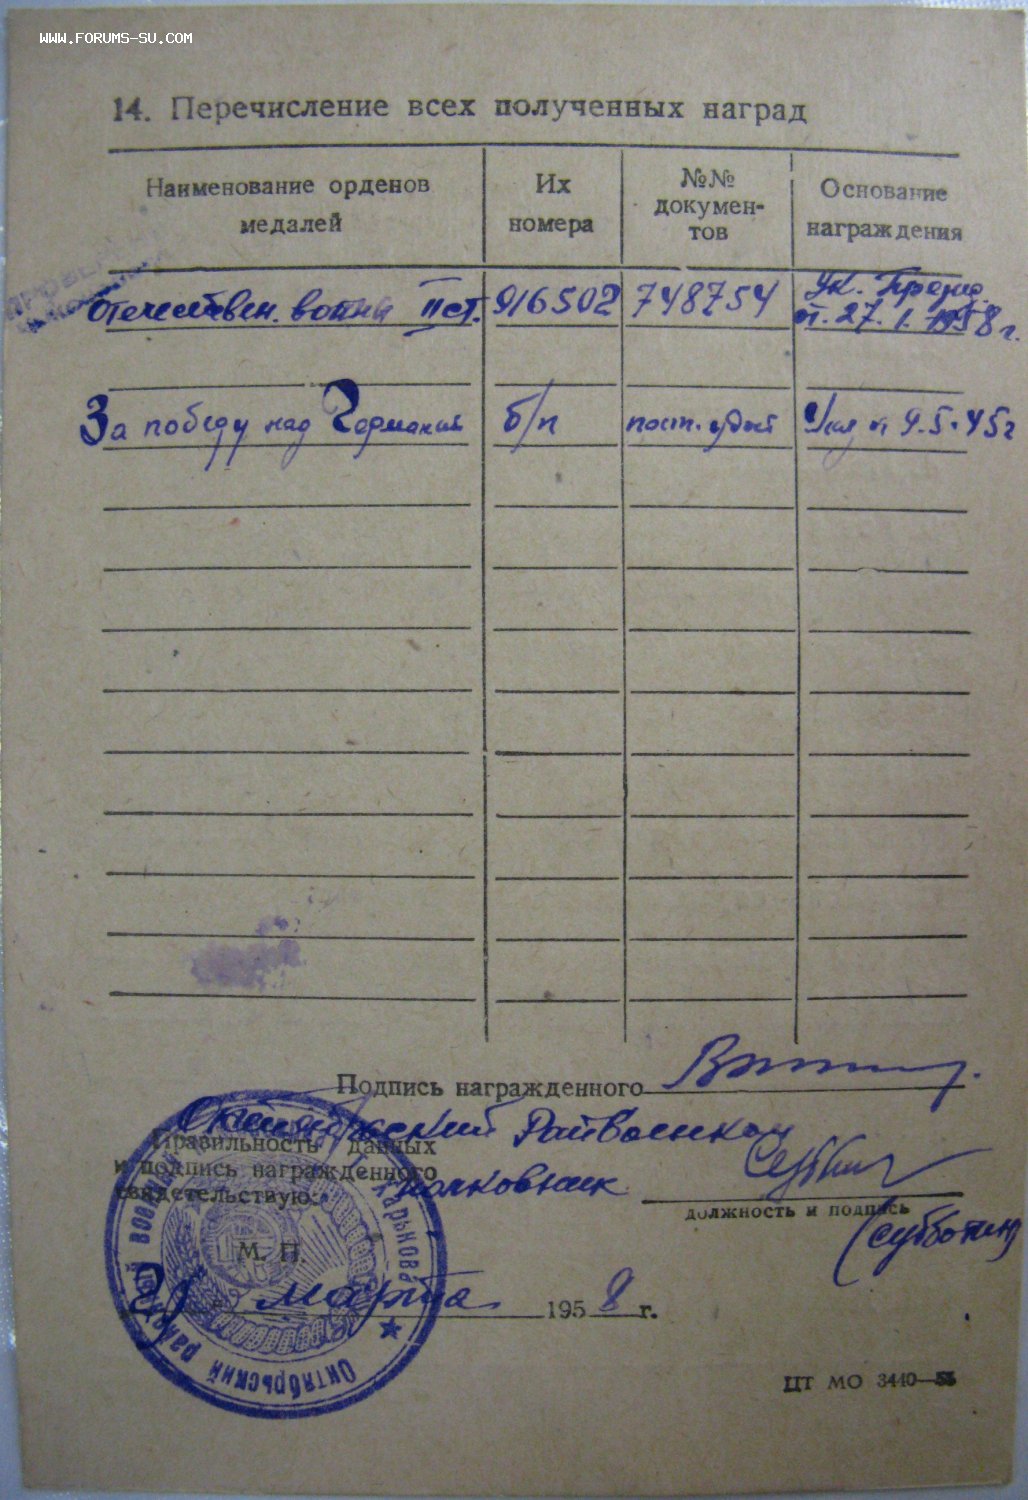 WWW.FORUMS-SU.COM
14. Перечисление всех полученных наград
Наименование орденов
медалей
Их
номера
№№
докумен-
тов
Основание
награждения
Отечествен. войны II ст. 916502 748754 Ук. Презид.
от 27.1.1958 г.
За победу над Германией б/н 9.5.45г
Подпись награжденного
Октябрьский Райвоенком
Правильность данных
и подпись награжденного
свидетельствую:
полковник
должность и подпись
(Субботин)
М. П.
марта 1958 г.
Октябрьский районный военный
Харькова
ЦТ МО 3440—